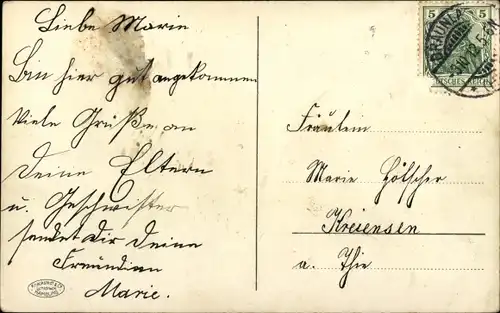 Liebe Marie
Bin hier gut angekommen
Viele Grüße an
Deine Eltern
u. Geschwister
sendet Dir Deine
Freundian
Marie.
5 5
Fräulein
Marie Hölscher
Kreiensen
a. Thie